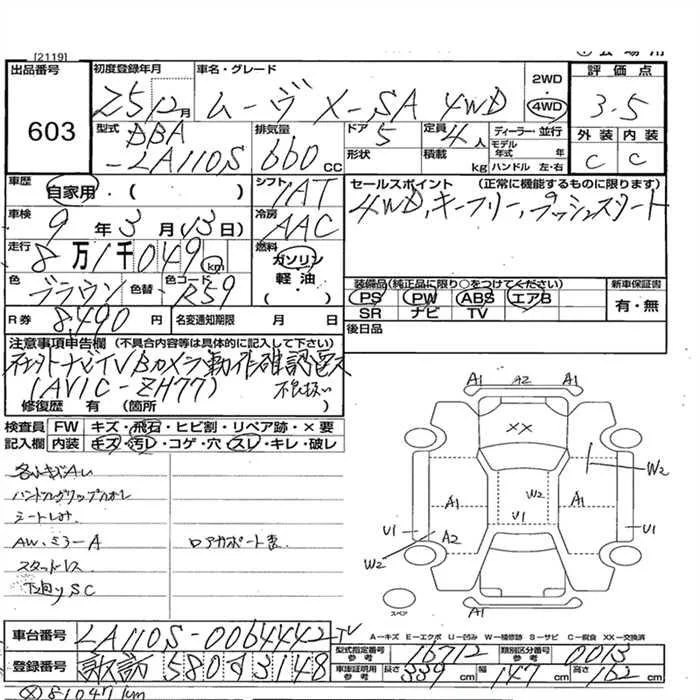 [2119]
出品番号
603
初度登録年月 車名・グレード 2WD 評価点
Z5 12月 ムーヴ X-SA 4WD 4WD 3.5
外装 内装
C C
型式 DBA 排気量 ドア 5 定員 4人 ディーラー・並行
-LA110S 660 CC 形状 積載 kg モデル年式 年
ハンドル 左・右
車歴 自家用・( ) シフト IAT セールスポイント (正常に機能するものに限ります)
4WD、キーフリー、プッシュスタート
車検 9年3月13日) 冷房 AAC
走行 8万1千049km 燃料 ガソリン
軽油・
( )
色 ブラウン 色替 色コード R59
装備品(純正品に限り○をつけてください) 新車保証書
PS PW ABS エアB 有・無
SR ナビ TV
R券 8,490円 名変通知期限 月 日 後日品
注意事項申告欄 (不具合内容等は具体的に記入して下さい)
社外ナビTVBカメラ動作確認
(AVIC-ZH77) 不良扱い
修復歴 有 (箇所 )
検査員 FW キズ・飛石・ヒビ割・リペア跡・×要
記入欄 内装 キズ・汚レ・コゲ・穴・スレ・キレ・破レ
ハンドルグリップ
AW、ミラーA
スタッドレス
下廻りSC
A1 A2 A1
XX
W2
A1 W2 A1
U1 U1 U1
A2
W2
A1
スペア
A=キズ E=エクボ U=凹み W=補修跡 S=サビ C=腐食 XX=交換済
車台番号 LA110S-0064442
型式指定番号 参考 16712 類別区分番号 参考 0013
登録番号 諏訪 580 3148
車庫証明用 参考 長さ 339cm 幅 147cm 高さ 162cm
81047km